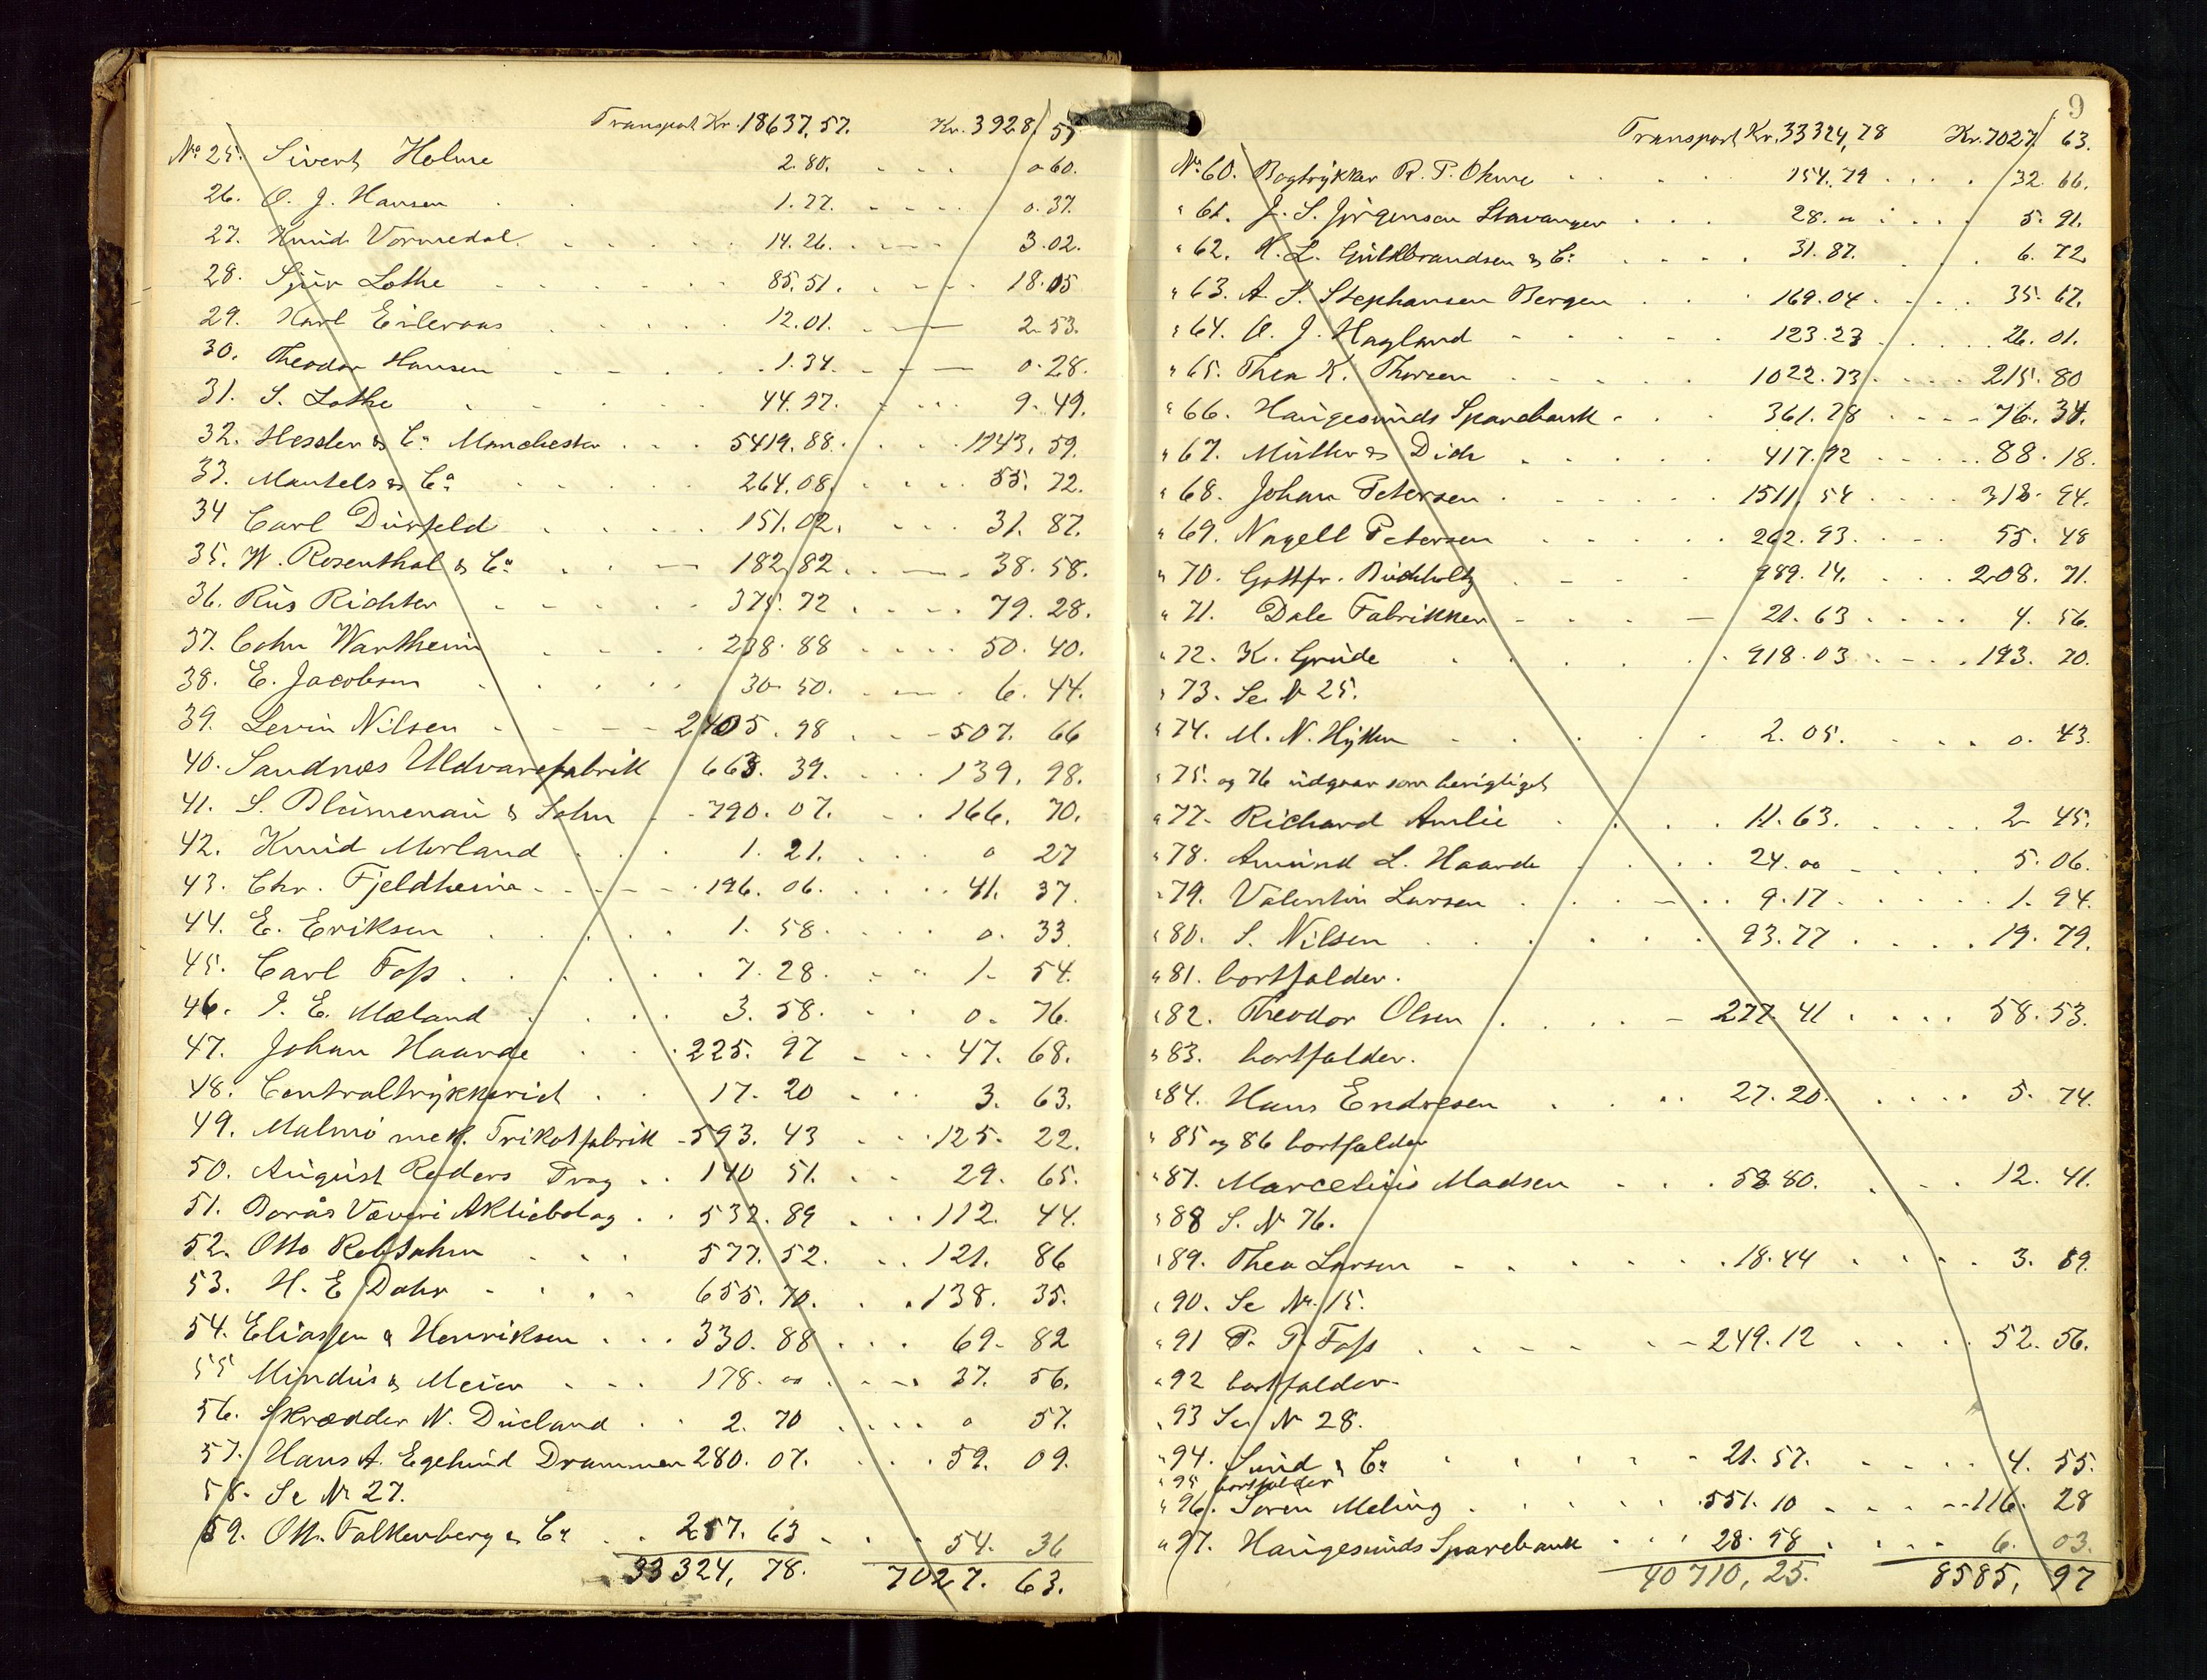 Transport Kr. 18637,57. Kr. 3928,57
No 25. Sivert Holme 2.80. 0.60.
26. O. J. Hansen 1.77. 0.37.
27. Knud Vormedal 14.26. 3.02.
28. Sjur Lothe 85.51. 18.05
29. Karl Eileraas 12.01. 2.53.
30. Theodor Hansen 1.34. 0.28.
31. S. Lothe 44.97. 9.49.
32. Hessler & Co Manchester 5419.88. 1143.59.
33. Mantels & Co 264.08. 55.72.
34 Carl Dürfeld 151.02. 31.87.
35. W. Rosenthal & Co 182.82. 38.58.
36. Rus Richter 375.72. 79.28.
37. Cohn Wartheim 238.88 50.40.
38. E. Jacobsen 30.50. 6.44.
39. Levin Nilsen 2405.98 507.66
40. Sandnæs Uldvarefabrik 663.39. 139.98.
41. S. Blumenau & Sohn 790.07. 166.70.
42. Knud Morland 1.21. 0 27
43. Chr. Fjeldheim 196.06. 41.37.
44. E. Eriksen 1.58. 0.33
45. Carl Foss 7.28. 1.54.
46. I. E. Mæland 3.58. 0.76.
47. Johan Haavde 225.97 47.68.
48. Centraltrykkeriet 17.20 3.63.
49. Malmö mek. Trikotfabrik 593.43 125.22.
50. August Reders Prag 140 51. 29.65.
51. Borås Væveri Aktiebolag 532.89 112.44.
52. Otto Robsahm 577.52. 121.86
53. H. E Dahr 655.70. 138.35.
54. Eliassen & Henriksen 330.88 69.82
55 Mindus & Meier 178.00 37.56.
56. Skrædder N. Dueland 2.70 0 57.
57. Hans A. Egelund Drammen 280.07. 59.09.
58. Se No 27.
59. Ott. Falkenberg & Co 257.63 54.36
33324,78. 7027.63.
9
Transport Kr. 33324,78 Kr. 7027,63.
No 60. Bogtrykker R. P. Ohme 154.79 32.66.
" 61. J. S. Jörgensen Stavanger 28. " 5.91.
" 62. H. L. Guldbrandsen & Co 31.87. 6.72
" 63. A. S. Stephansen Bergen 169.04 35.67.
" 64. O. J. Hagland 123.23 26.01.
" 65. Thea K. Thorsen 1022.73 215.80
" 66. Haugesunds Sparebank 361.78 76.34.
" 67. Müller & Dich 417.92 88.18.
" 68. Johan Petersen 1511.54 318.94.
" 69. Nagell Petersen 262.93. 55.48
" 70. Gottfr. Buchholtz 989.14. 208.71.
" 71. Dale Fabrikker 21.63 4.56.
" 72. K. Grude 918.03 193.70.
" 73. Se No 25.
" 74. M. N. Hytten 2.05. 0.43.
" 75. og 76 udgaar som berigtiget
" 77. Richard Amlie 11.63. 2 45.
" 78. Amund L. Haavde 24.00 5.06.
" 79. Valentin Larsen 9.17 1.94.
" 80. S. Nilsen 93.77 19.79.
" 81. bortfalder.
" 82. Theodor Olsen 277.41 58.53.
" 83. bortfalder.
" 84. Hans Endresen 27.20. 5.74.
" 85 og 86 bortfalder
" 87. Marcelius Madsen 58 80. 12.41.
" 88 S. No 76.
" 89. Thea Larsen 18.44 3.89.
" 90. Se Nr. 15.
" 91 P. P. Foss 249.12 52.56.
" 92 bortfalder.
" 93 Se No 28.
" 94. Sund & Co 21.57. 4.55.
" 95 bortfalder
" 96. Soren Meling 551.10 116.28
" 97. Haugesunds Sparebank 28.58 6.03.
40710,25. 8585,97